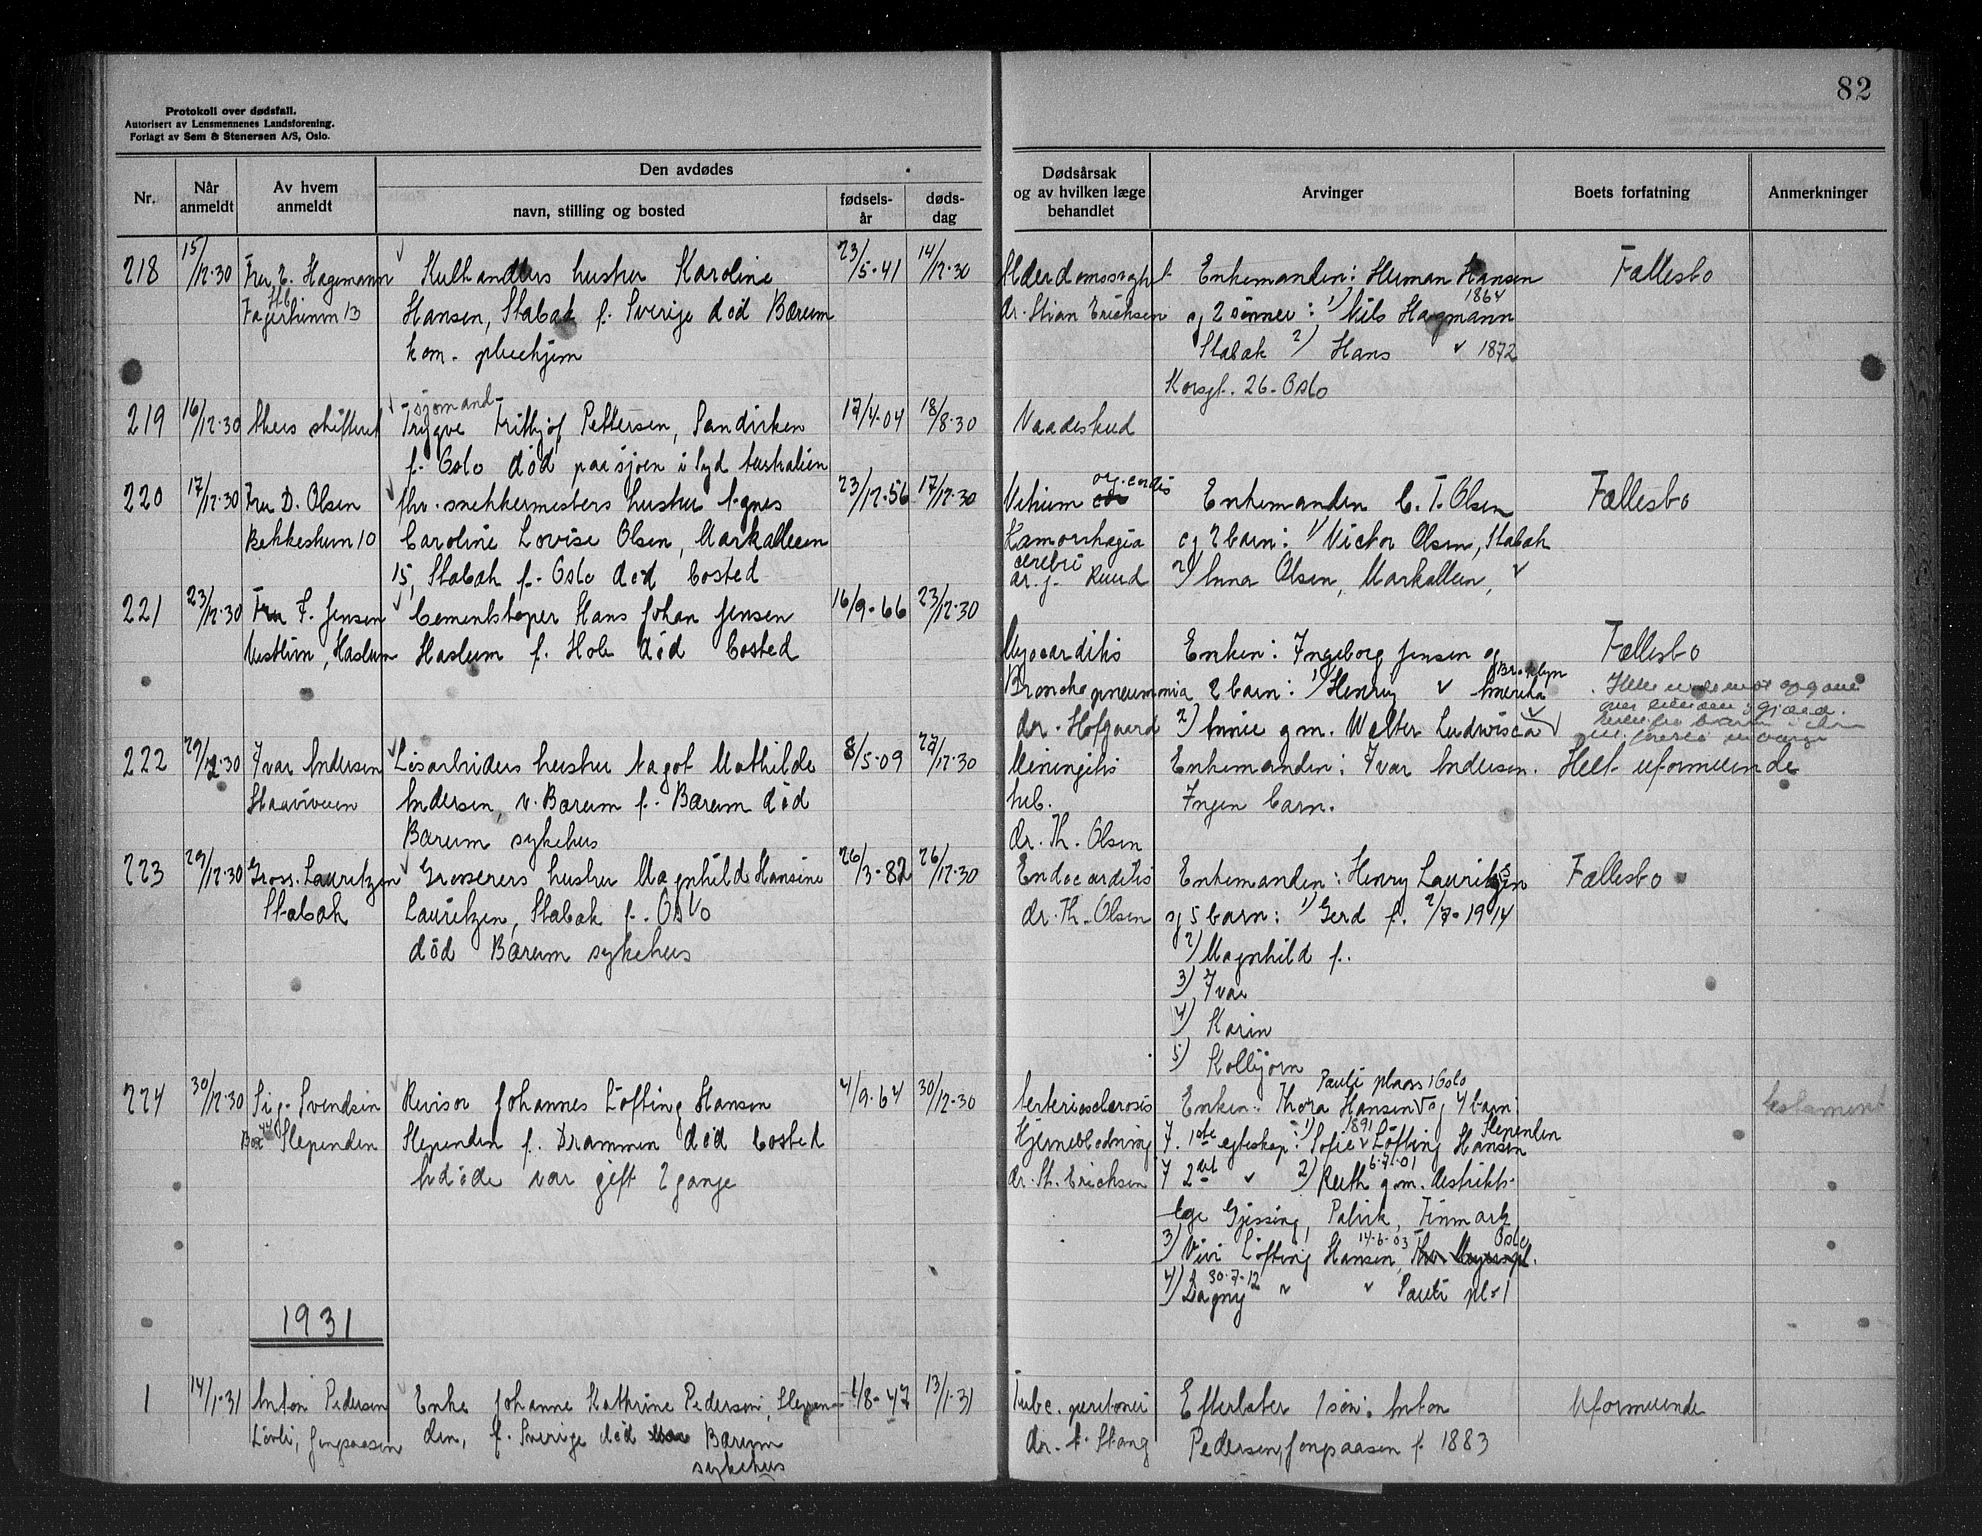 82
Protokoll over dødsfall.
Autorisert av Lensmennenes Landsforening.
Forlagt av Sem & Stenersen A/S, Oslo.
Nr. Når anmeldt Av hvem anmeldt Den avdødes navn, stilling og bosted fødsels-år døds-dag Dødsårsak og av hvilken læge behandlet Arvinger Boets forfatning Anmerkninger
218 15/12-30 Fru E. Hagemann Kulhandlers hustru Karoline 23/5-41 14/12-30 Alderdomssvaghet Enkemanden: Herman Hansen Fællesbo
Stb.
1864
Fagerheimv 13 Hansen, Stabæk f. Sverige død Bærum dr. Stian Erichsen og 2 sønner: 1) Nils Hagmann
kom. pleiehjem Stabæk 2) Hans " 1872
Korsgt. 26 - Oslo
- sjømand -
219 16/12-30 Akers skifteret Trygve Fritjof Pettersen, Sandviken 17/4-04 18/8-30 Vaadeskud
f. Oslo død paa sjøen i Syd Australien
220 17/12-30 Fru D. Olsen fhv. snekkermesters hustru Agnes 23/12-56 17/12-30 Vitium org. cordis Enkemanden C. T. Olsen Fællesbo
Bekkeheim 10 Caroline Lovise Olsen, Markalleen Hæmorrhagia og 2 barn: 1) Victor Olsen, Stabæk
cerebri
15, Stabæk f. Oslo død bosted dr. J. Ruud 2) Anna Olsen, Markalleen, "
221 23/12-30 Fru F. Jensen Cementstøper Hans Johan Jensen 16/9-66 23/12-30
Vestlivn, Haslum Haslum f. Hole død bosted Myocarditis Enken: Ingeborg Jensen og Fællesbo
Brooklyn
Broncho pneumonia 2 barn: 1) Henry " Amerika
dr. Hofgaard 2) Annie g.m. Walter
222 29/12-30 Ivar Andersen Løsarbeiders hustru Dagot Mathilde 8/5-09 27/12-30 Meningitis Enkemanden: Ivar Andersen. Helt uformuende
Andersen, v. Bærum f. Bærum død tub. Ingen barn.
Bærum sykehus dr. Th. Olsen
223 29/12-30 Gross. Lauritzen Grosserers hustru Magnhild Hansine 26/3-82 26/12-30 Endocarditis Enkemanden: Henry Lauritzen Fællesbo
Stabæk Lauritzen, Stabæk f. Oslo dr. Th. Olsen og 5 barn: 1) Gerd f. 2/7-1914
død Bærum sykehus 2) Magnhild f.
3) Ivar
4) Karin
5) Kolbjørn
Pauli plass 1 Oslo
224 30/12-30 Sig. Svendsen Revisor Johannes Løfting Hansen 4/9-64 30/12-30 Arteriosclerosis Enken: Thora Hansen og 4 barn: testament
1891 Slependen
Box 44 Slependen Slependen f. Drammen død bosted Hjerneblødning I 1ste egteskap: 1) Sofie Løfting Hansen
6-7-01
Avdøde var gift 2 gange dr. St. Erichsen I 2det " 2) Ruth g.m. distrikts-
læge Gjessing, Talvik, Finmark
14-6-03 Oslo
3) Vivi Løfting Hansen,
30-7-12
4) Dagny " " Pauli pl. 1
1931
1 14/1-31 Anton Pedersen Enke Johanne Kathrine Pedersen, Slepen- 1/8-47 13/1-31 Tube. peritonei Efterlater 1 søn: Anton Uformuende
Løvli, Jongsaasen den, f. Sverige død Bærum dr. A. Stang Pedersen, Jongsaasen f. 1883
sykehus